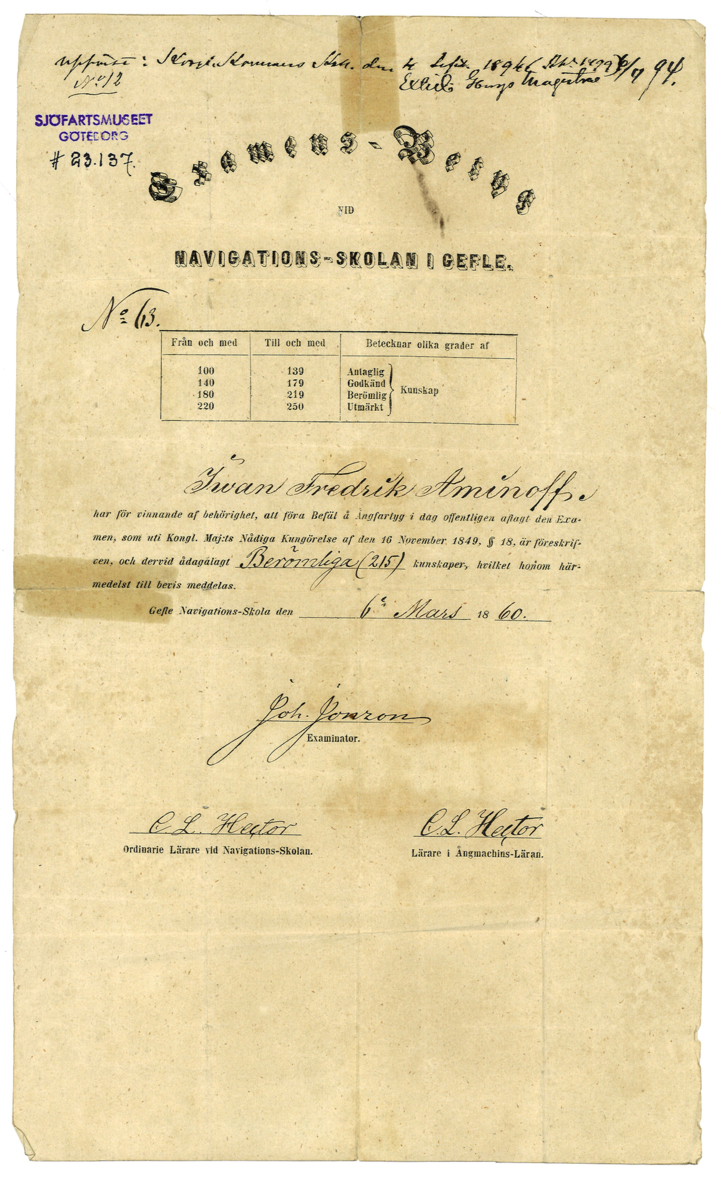 uppvist: Kongl.
No 12
SJÖFARTSMUSEET
GÖTEBORG
# 23.137.
Examens-Betyg
VID
NAVIGATIONS-SKOLAN I GEFLE.
No 63.
Från och med Till och med Betecknar olika grader af
100 139 Antaglig
140 179 Godkänd
180 219 Berömlig
220 250 Utmärkt
Kunskap
Iwan Fredrik Aminoff
har för vinnande af behörighet, att föra Befäl å Ångfartyg i dag offentligen aflagt den Exa-
men, som uti Kongl. Maj:ts Nådiga Kungörelse af den 16 November 1849, § 18, är föreskrif-
ven, och dervid ådagalagt Berömliga (215) kunskaper, hvilket honom här-
medelst till bevis meddelas.
Gefle Navigations-Skola den 6e Mars 1860.
Joh. Jonzon
Examinator.
C. L. Hector C. L. Hector
Ordinarie Lärare vid Navigations-Skolan. Lärare i Ångmachins-Läran.